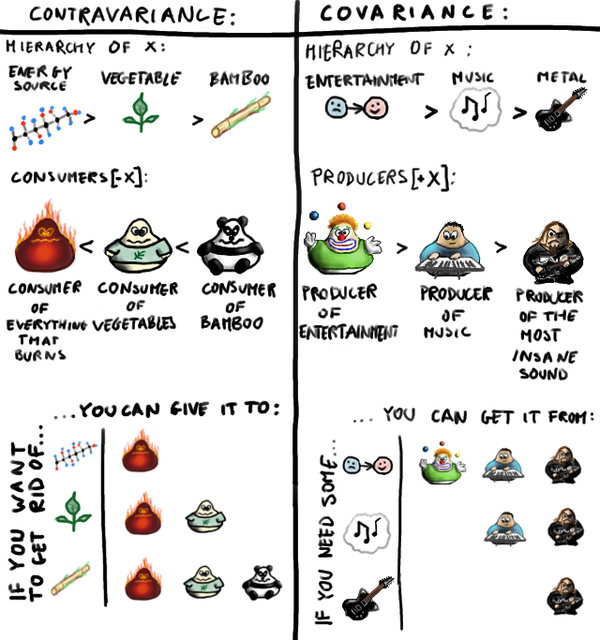 CONTRAVARIANCE:
HIERARCHY OF X:
ENERGY
SOURCE
VEGETABLE
BAMBOO
>
>
CONSUMERS[-X]:
<
<
CONSUMER
OF
EVERYTHING
THAT
BURNS
CONSUMER
OF
VEGETABLES
CONSUMER
OF
BAMBOO
...YOU CAN GIVE IT TO:
IF YOU WANT
TO GET RID OF...
COVARIANCE:
HIERARCHY OF X:
ENTERTAINMENT
MUSIC
METAL
>
>
PRODUCERS[+X]:
>
>
PRODUCER
OF
ENTERTAINMENT
PRODUCER
OF
MUSIC
PRODUCER
OF THE
MOST
INSANE
SOUND
... YOU CAN GET IT FROM:
IF YOU NEED SOME...